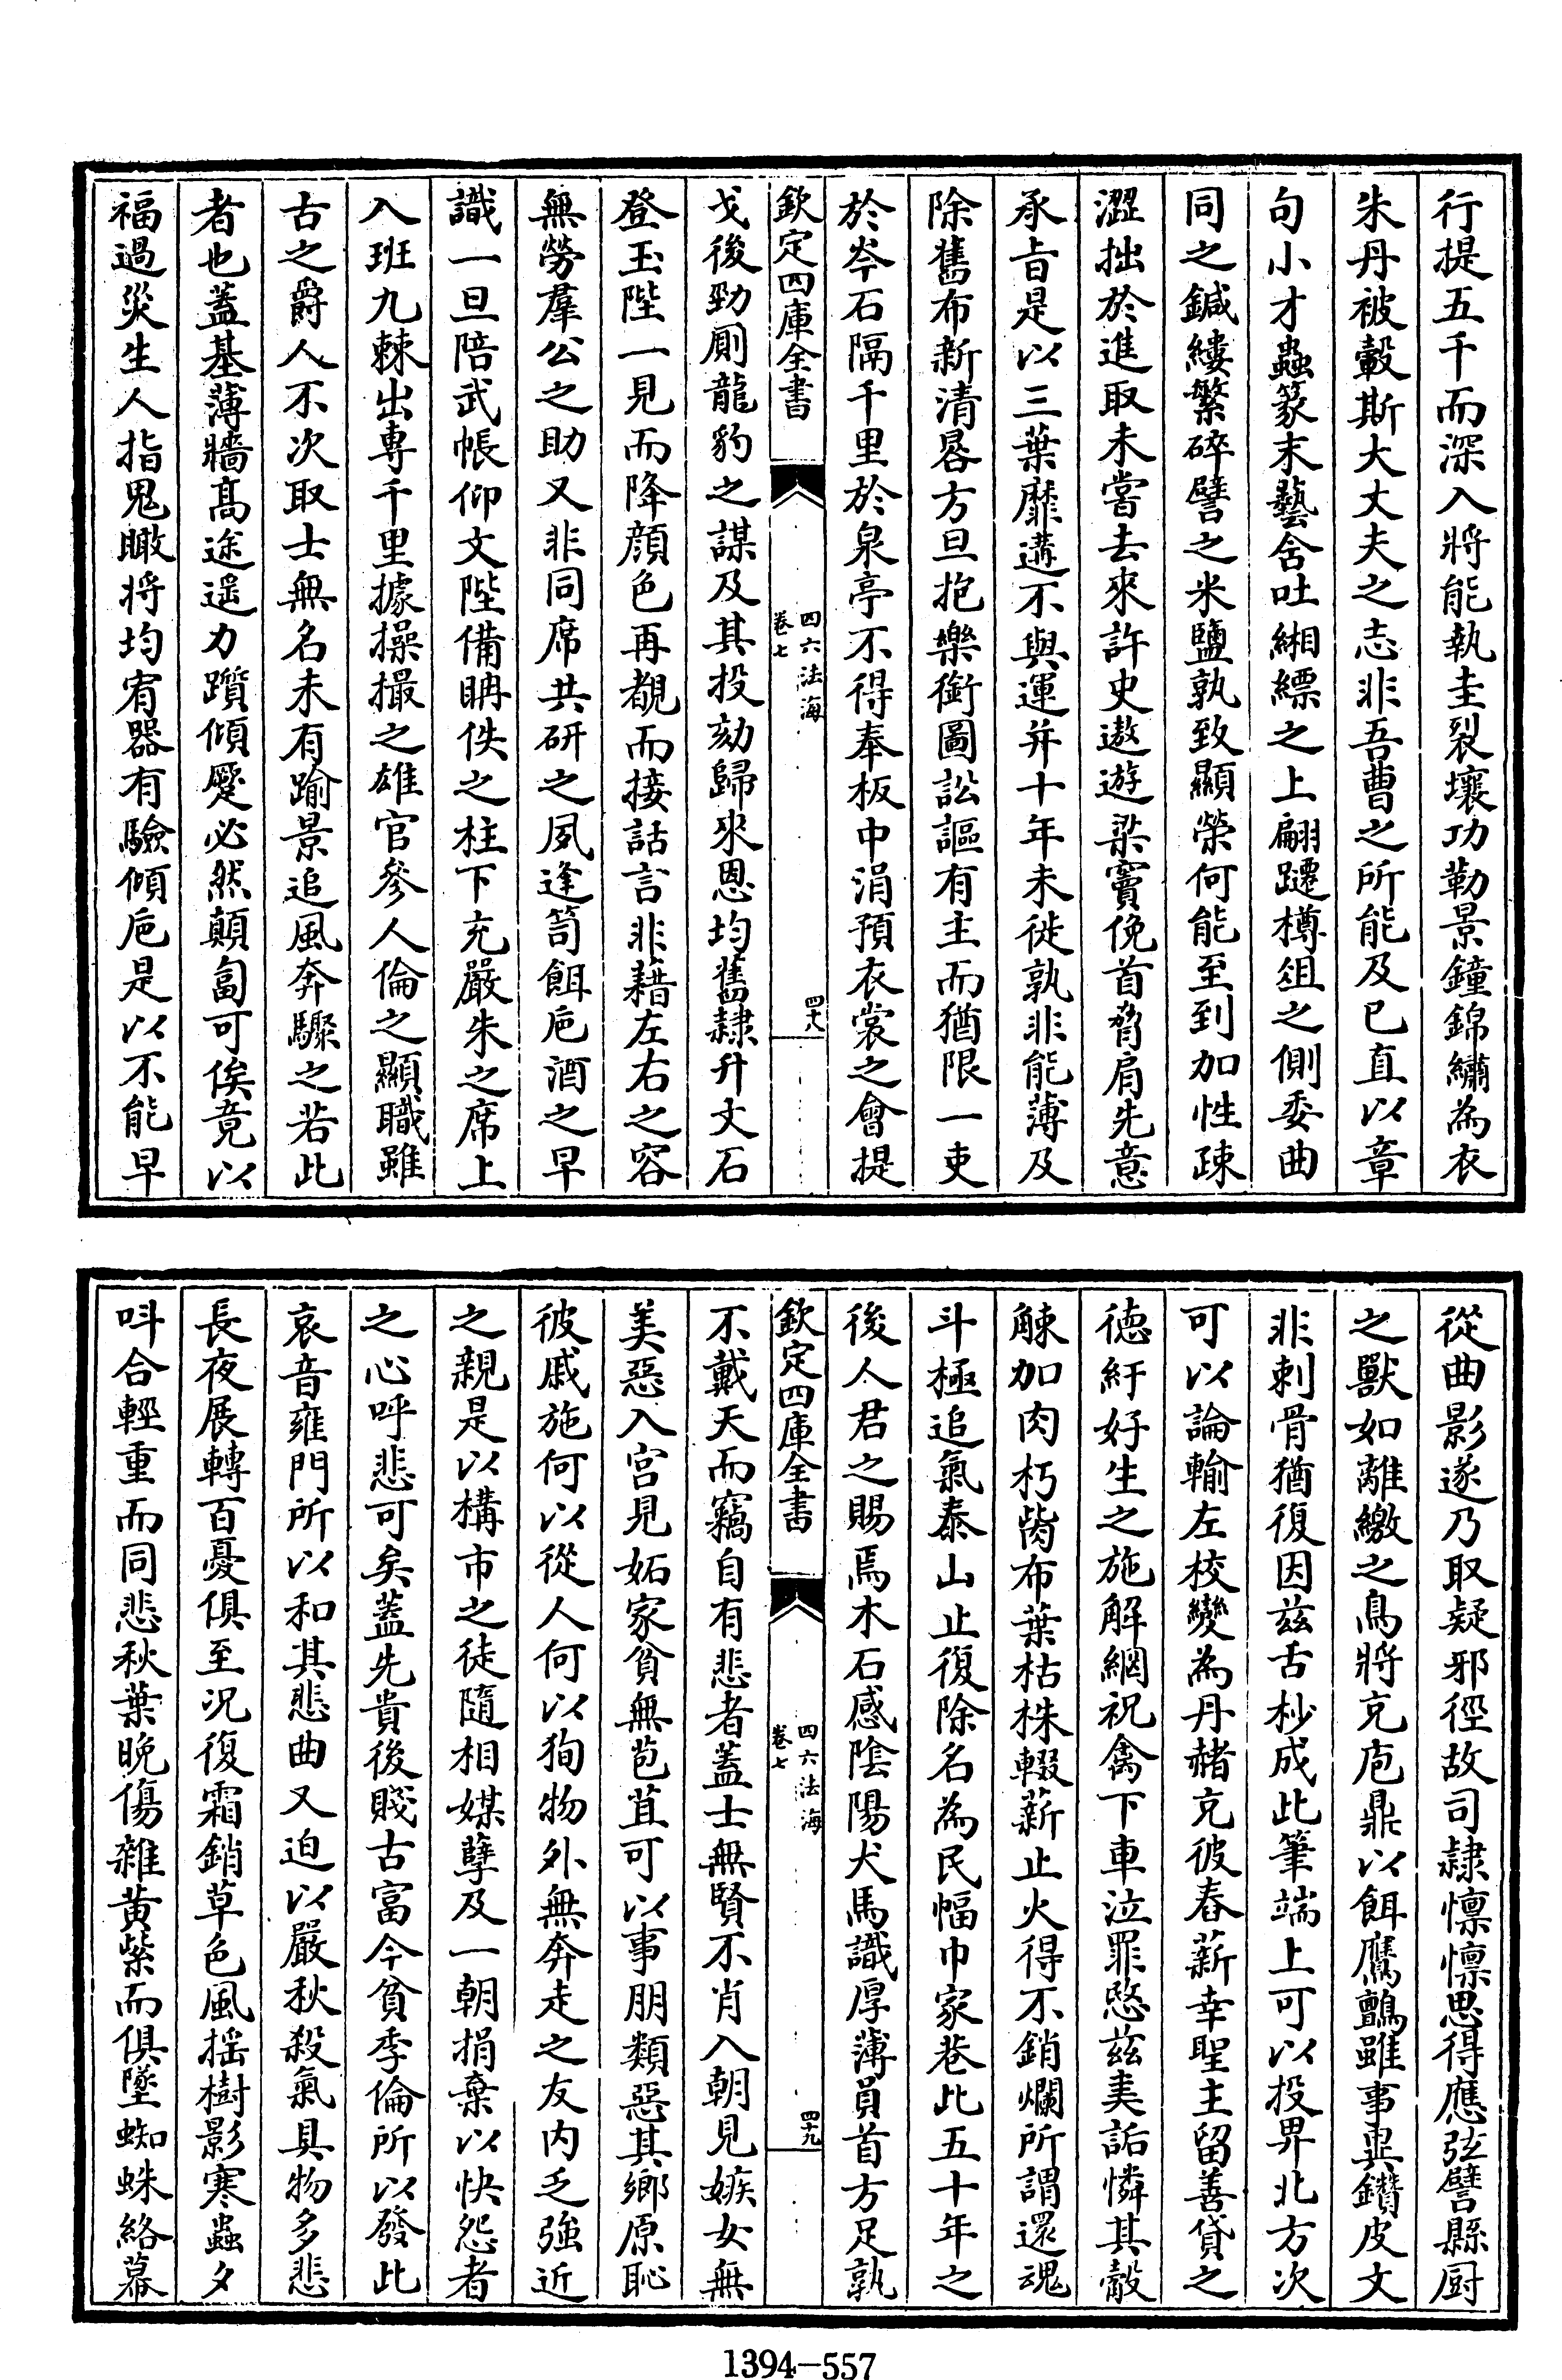 行提五千而深入將能執圭裂壤功勒景鐘錦繡為衣
朱丹被轂斯大丈夫之志非吾曹之所能及已直以章
句小才蟲篆末藝含吐緗縹之上翩躚樽俎之側委曲
同之鍼縷繁碎譬之米鹽孰致顯榮何能至到加性疎
澀拙於進取未嘗去來許史遨遊梁竇俛首脅肩先意
承旨是以三葉靡遘不與運并十年未徙孰非能薄及
除舊布新清晷方旦抱樂銜圖訟謳有主而猶限一吏
於岑石隔千里於泉亭不得奉板中涓預衣裳之會提
欽定四庫全書
四六法海
卷七
四十八
戈後勁厠龍豹之謀及其投劾歸來恩均舊隸升文石
登玉陛一見而降顏色再覩而接話言非藉左右之容
無勞羣公之助又非同席共研之夙逢笥餌巵酒之早
識一旦陪武帳仰文陛備聃佚之柱下充嚴朱之席上
入班九棘出專千里據操撮之雄官參人倫之顯職雖
古之爵人不次取士無名未有踰景追風奔驟之若此
者也蓋基薄牆高途遥力躓傾蹷必然顛匐可俟竟以
福過災生人指鬼瞰將均宥器有驗傾巵是以不能早
從曲影遂乃取疑邪徑故司隸懍懍思得應弦譬縣厨
之獸如離繳之鳥將充庖鼎以餌鷹鸇雖事異鑽皮文
非刺骨猶復因兹舌杪成此筆端上可以投畀北方次
可以論輸左校變為丹赭充彼舂薪幸聖主留善貸之
徳紆好生之施解網祝禽下車泣罪愍兹恚詬憐其觳
觫加肉朽胔布葉枯株輟薪止火得不銷爛所謂還魂
斗極追氣泰山止復除名為民幅巾家巷此五十年之
後人君之賜焉木石感陰陽犬馬識厚薄員首方足孰
欽定四庫全書
四六法海
卷七
四十九
不戴天而竊自有悲者蓋士無賢不肖入朝見嫉女無
美惡入宮見妬家貧無苞苴可以事朋類惡其鄉原恥
彼戚施何以從人何以狥物外無奔走之友内乏強近
之親是以構市之徒隨相媒孽及一朝捐棄以快怨者
之心呼悲可矣蓋先貴後賤古富今貧季倫所以發此
哀音雍門所以和其悲曲又迫以嚴秋殺氣具物多悲
長夜展轉百憂俱至况復霜銷草色風搖樹影寒蟲夕
呌合輕重而同悲秋葉晚傷雜黄紫而俱墜蜘蛛絡幕
1394—557